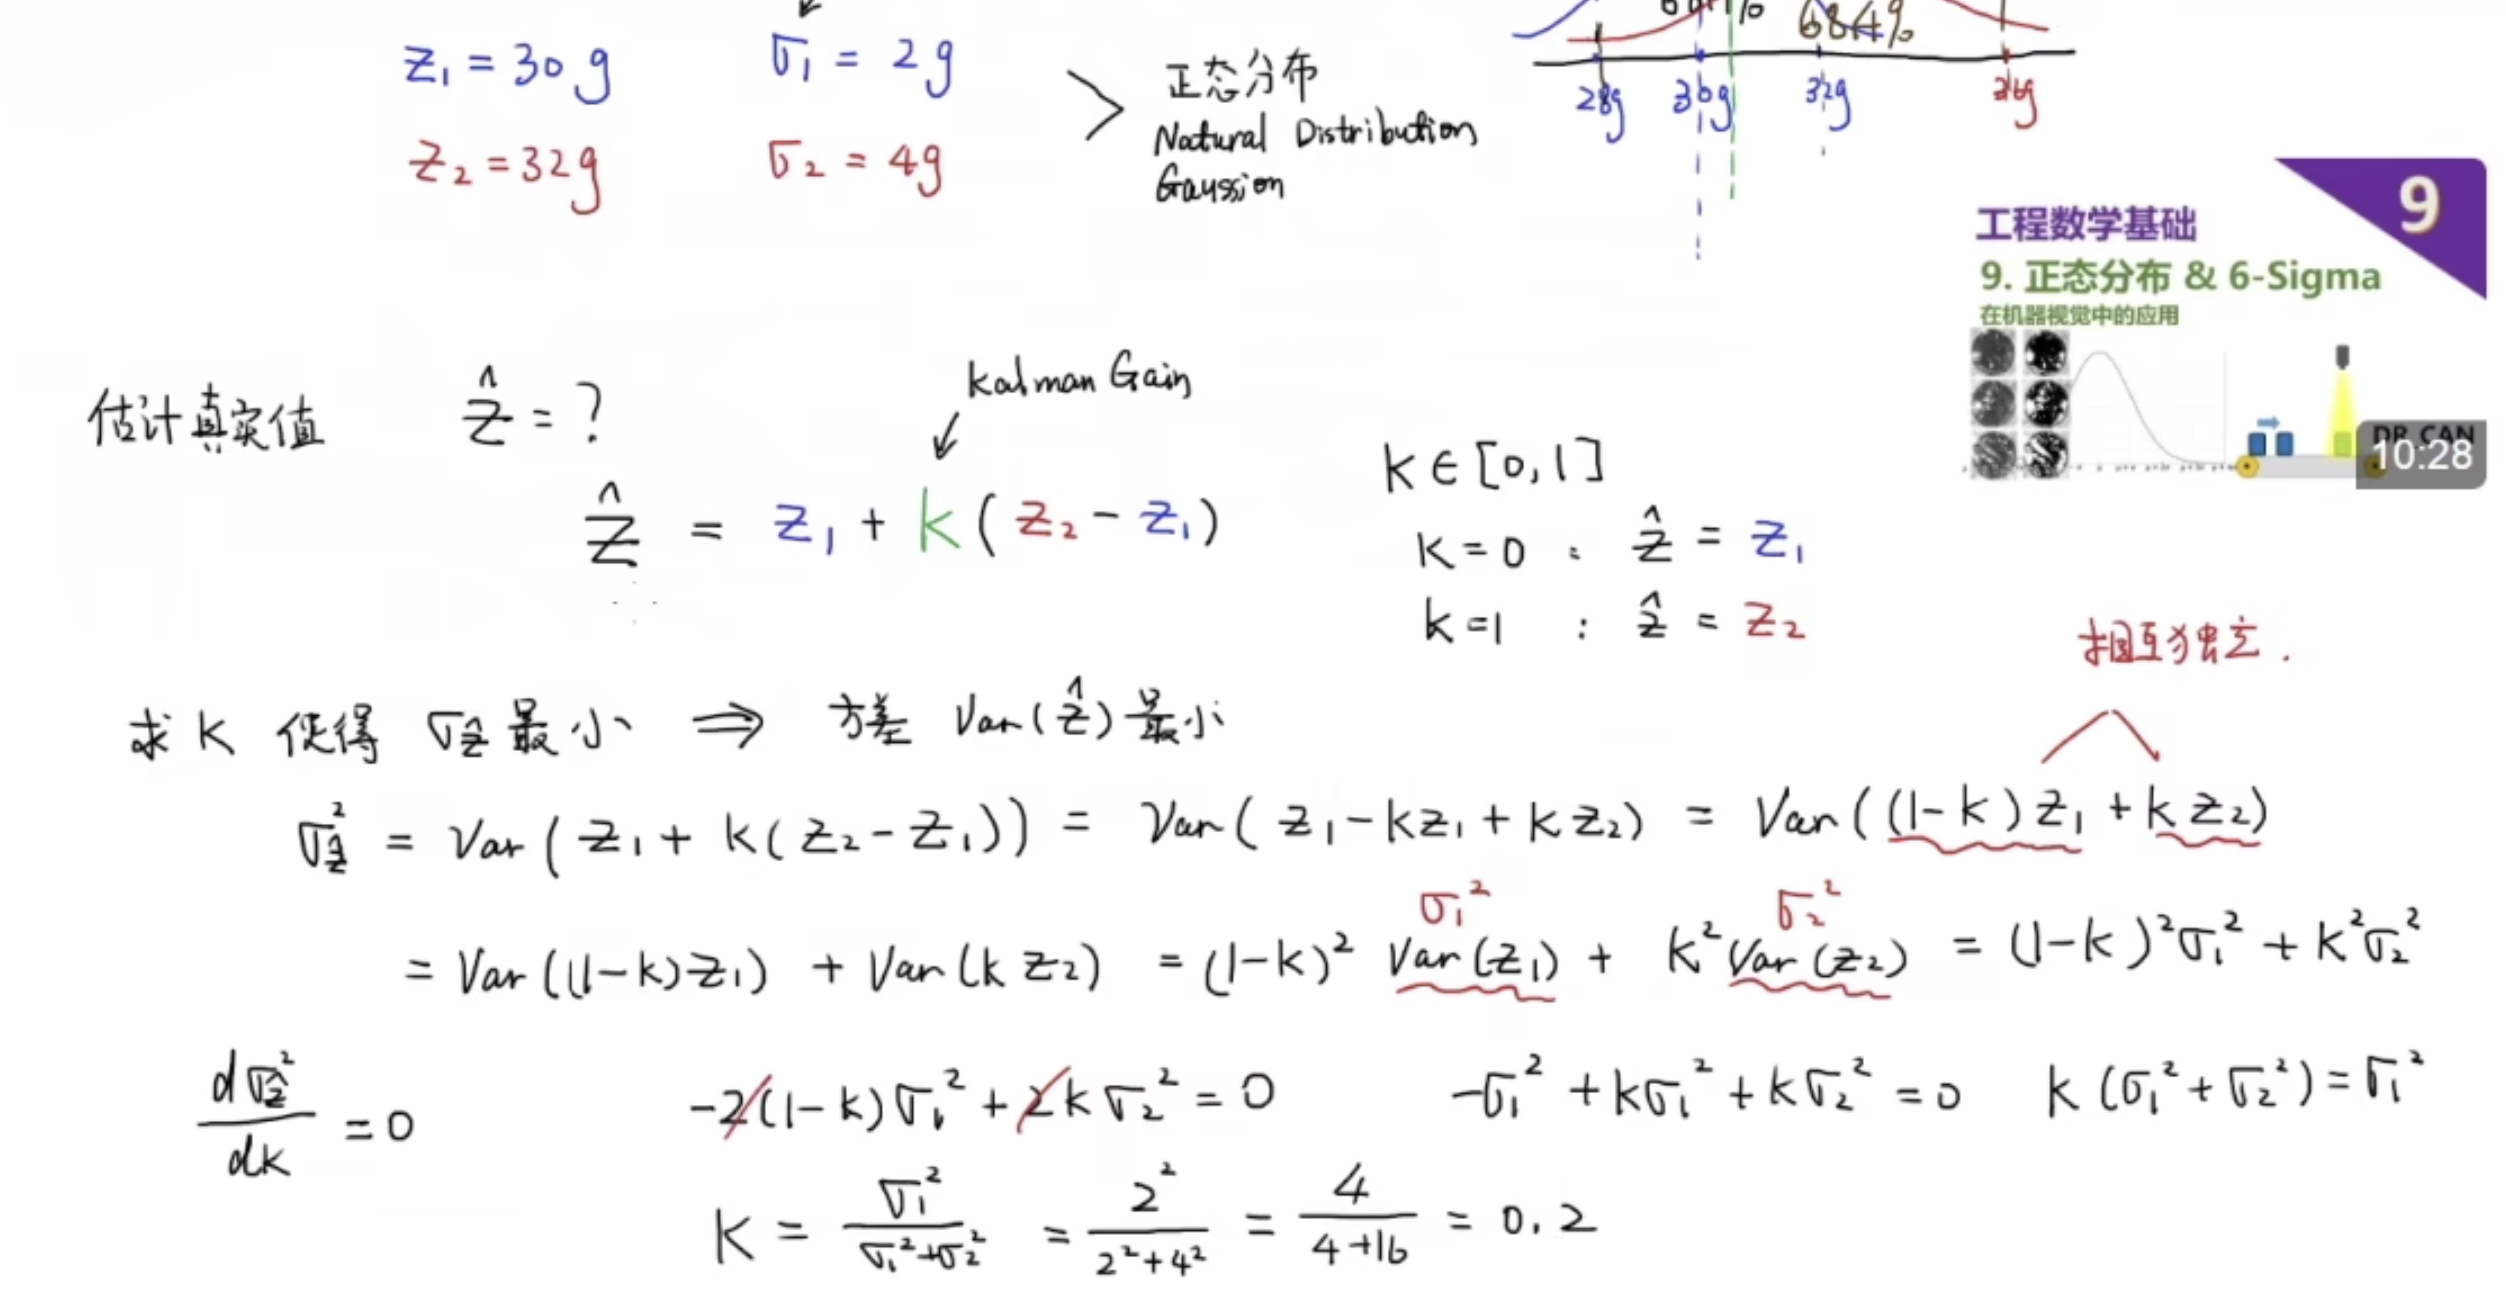 z₁ = 30g σ₁ = 2g
z₂ = 32g σ₂ = 4g
正态分布
Natural Distribution
Gaussion
68.4%
28g 30g 32g 36g
9
工程数学基础
9. 正态分布 & 6-Sigma
在机器视觉中的应用
DR_CAN
10:28
估计真实值 ẑ = ?
Kalman Gain
ẑ = z₁ + k(z₂ - z₁)
k ∈ [0,1]
k = 0 : ẑ = z₁
k = 1 : ẑ = z₂
相互独立.
求 k 使得 σẑ 最小 ⇒ 方差 Var(ẑ) 最小
σẑ² = Var(z₁ + k(z₂ - z₁)) = Var(z₁ - kz₁ + kz₂) = Var((1-k)z₁ + kz₂)
σ₁² σ₂²
= Var((1-k)z₁) + Var(kz₂) = (1-k)² Var(z₁) + k² Var(z₂) = (1-k)²σ₁² + k²σ₂²
dσẑ²/dk = 0 -2(1-k)σ₁² + 2kσ₂² = 0 -σ₁² + kσ₁² + kσ₂² = 0 k(σ₁² + σ₂²) = σ₁²
k = σ₁²/(σ₁²+σ₂²) = 2²/(2²+4²) = 4/(4+16) = 0.2